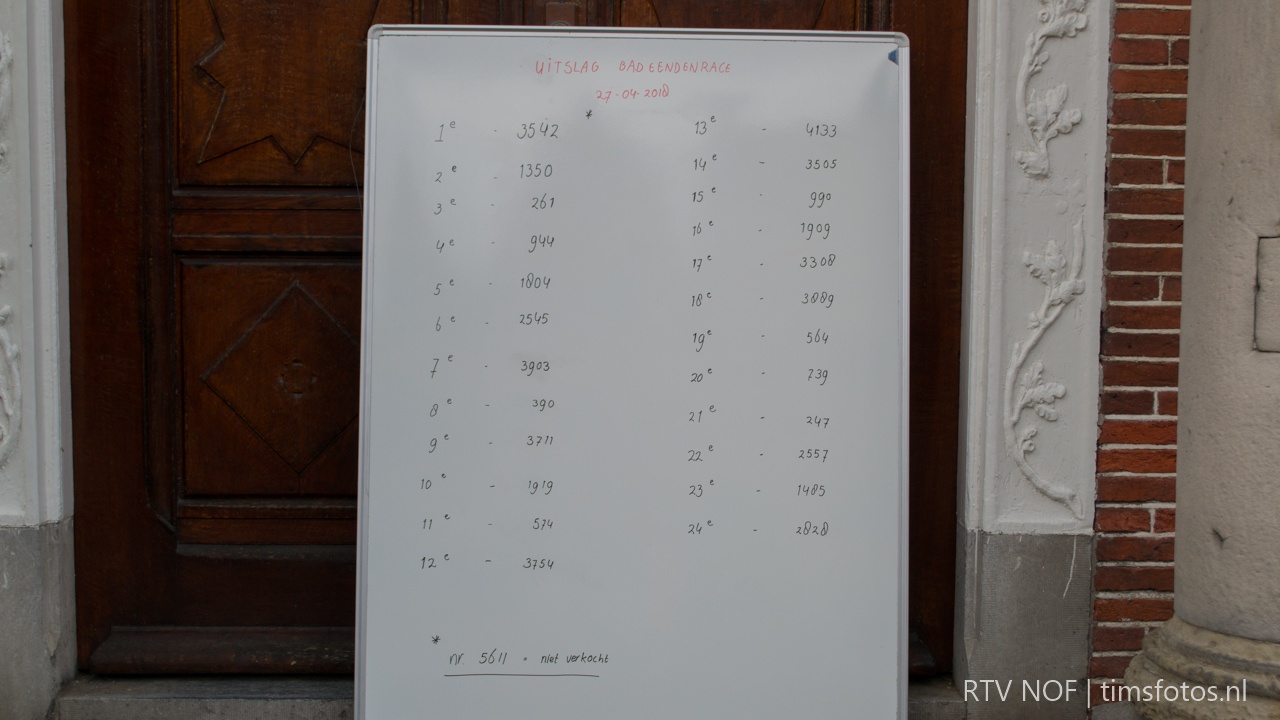 UITSLAG BADEENDENRACE
27-04-2018
*
1e - 3542
2e - 1350
3e - 261
4e - 944
5e - 1804
6e - 2545
7e - 3903
8e - 390
9e - 3711
10e - 1919
11e - 574
12e - 3754
13e - 4133
14e - 3505
15e - 990
16e - 1909
17e - 3308
18e - 3889
19e - 564
20e - 739
21e - 247
22e - 2557
23e - 1485
24e - 2828
*
nr. 5611 - niet verkocht
RTV NOF | timsfotos.nl